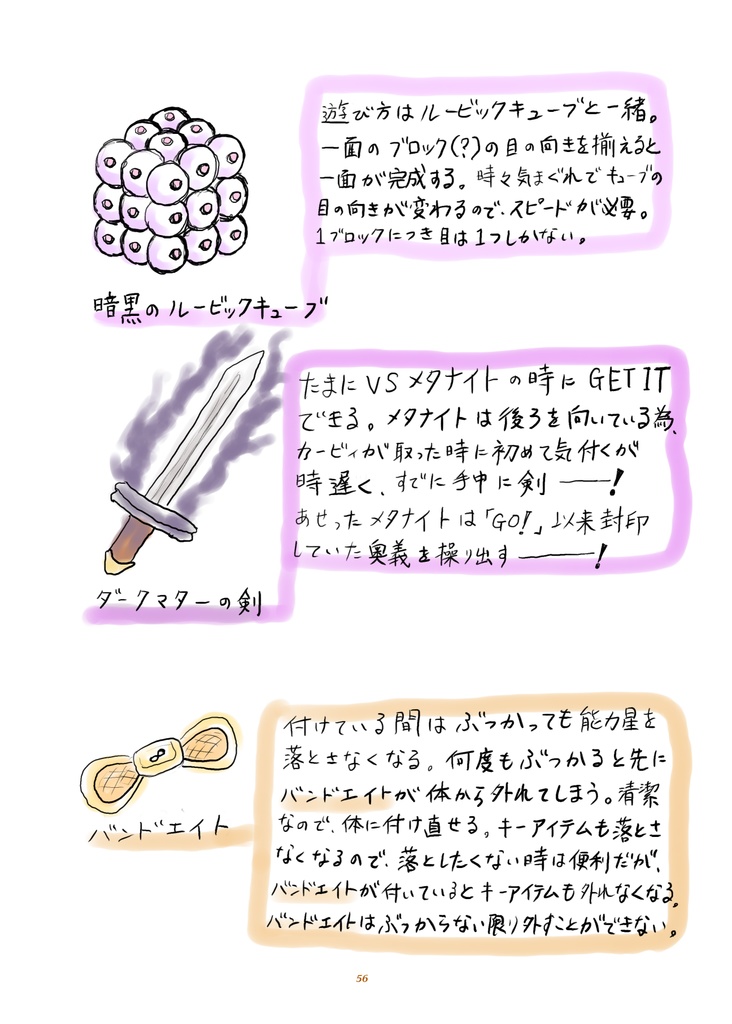 遊び方はルービックキューブと一緒。
一面のブロック(?)の目の向きを揃えると
一面が完成する。時々気まぐれでキューブの
目の向きが変わるので、スピードが必要。
1ブロックにつき目は1つしかない。
暗黒のルービックキューブ
たまにVSメタナイトの時にGET IT
できる。メタナイトは後ろを向いている為、
カービィが取った時に初めて気付くが
時遅く、すでに手中に剣――!
あせったメタナイトは「GO!」以来封印
していた奥義を操り出す――!
ダークマターの剣
付けている間はぶつかっても能力星を
落とさなくなる。何度もぶつかると先に
バンドエイトが体から外れてしまう。清潔
なので、体に付け直せる。キーアイテムも落とさ
なくなるので、落としたくない時は便利だが、
バンドエイトが付いているとキーアイテムも外れなくなる。
バンドエイトはぶつからない限り外すことができない。
8
バンドエイト
56